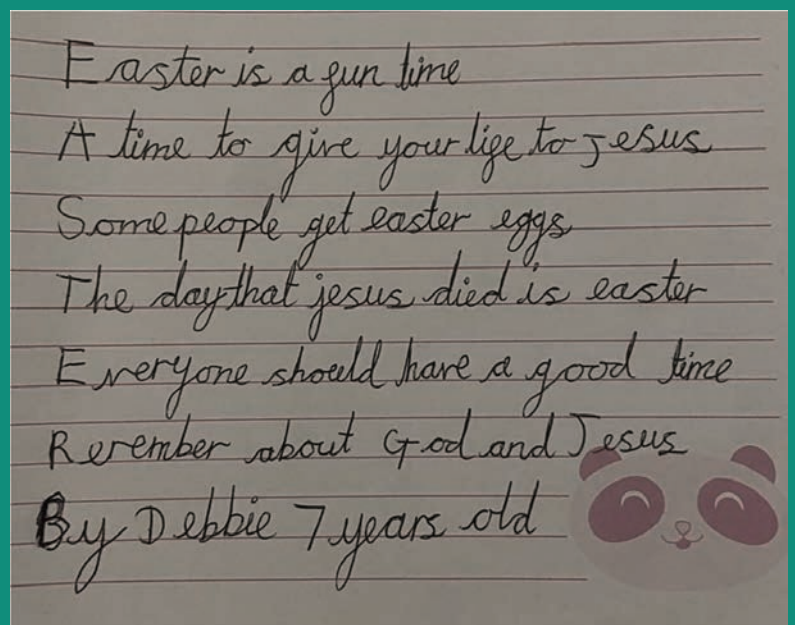 Easter is a fun time
A time to give your life to Jesus
Some people get easter eggs
The day that jesus died is easter
Everyone should have a good time
Rerember about God and Jesus
By Debbie 7 years old